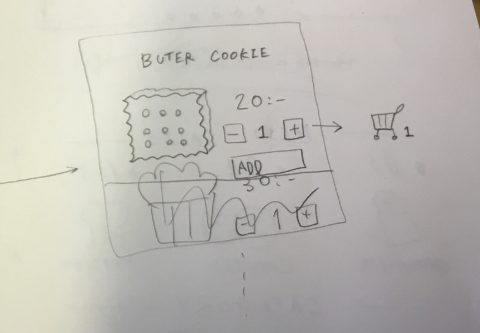 BUTER COOKIE
20:-
- 1 +
1
ADD
30:-
- 1 +